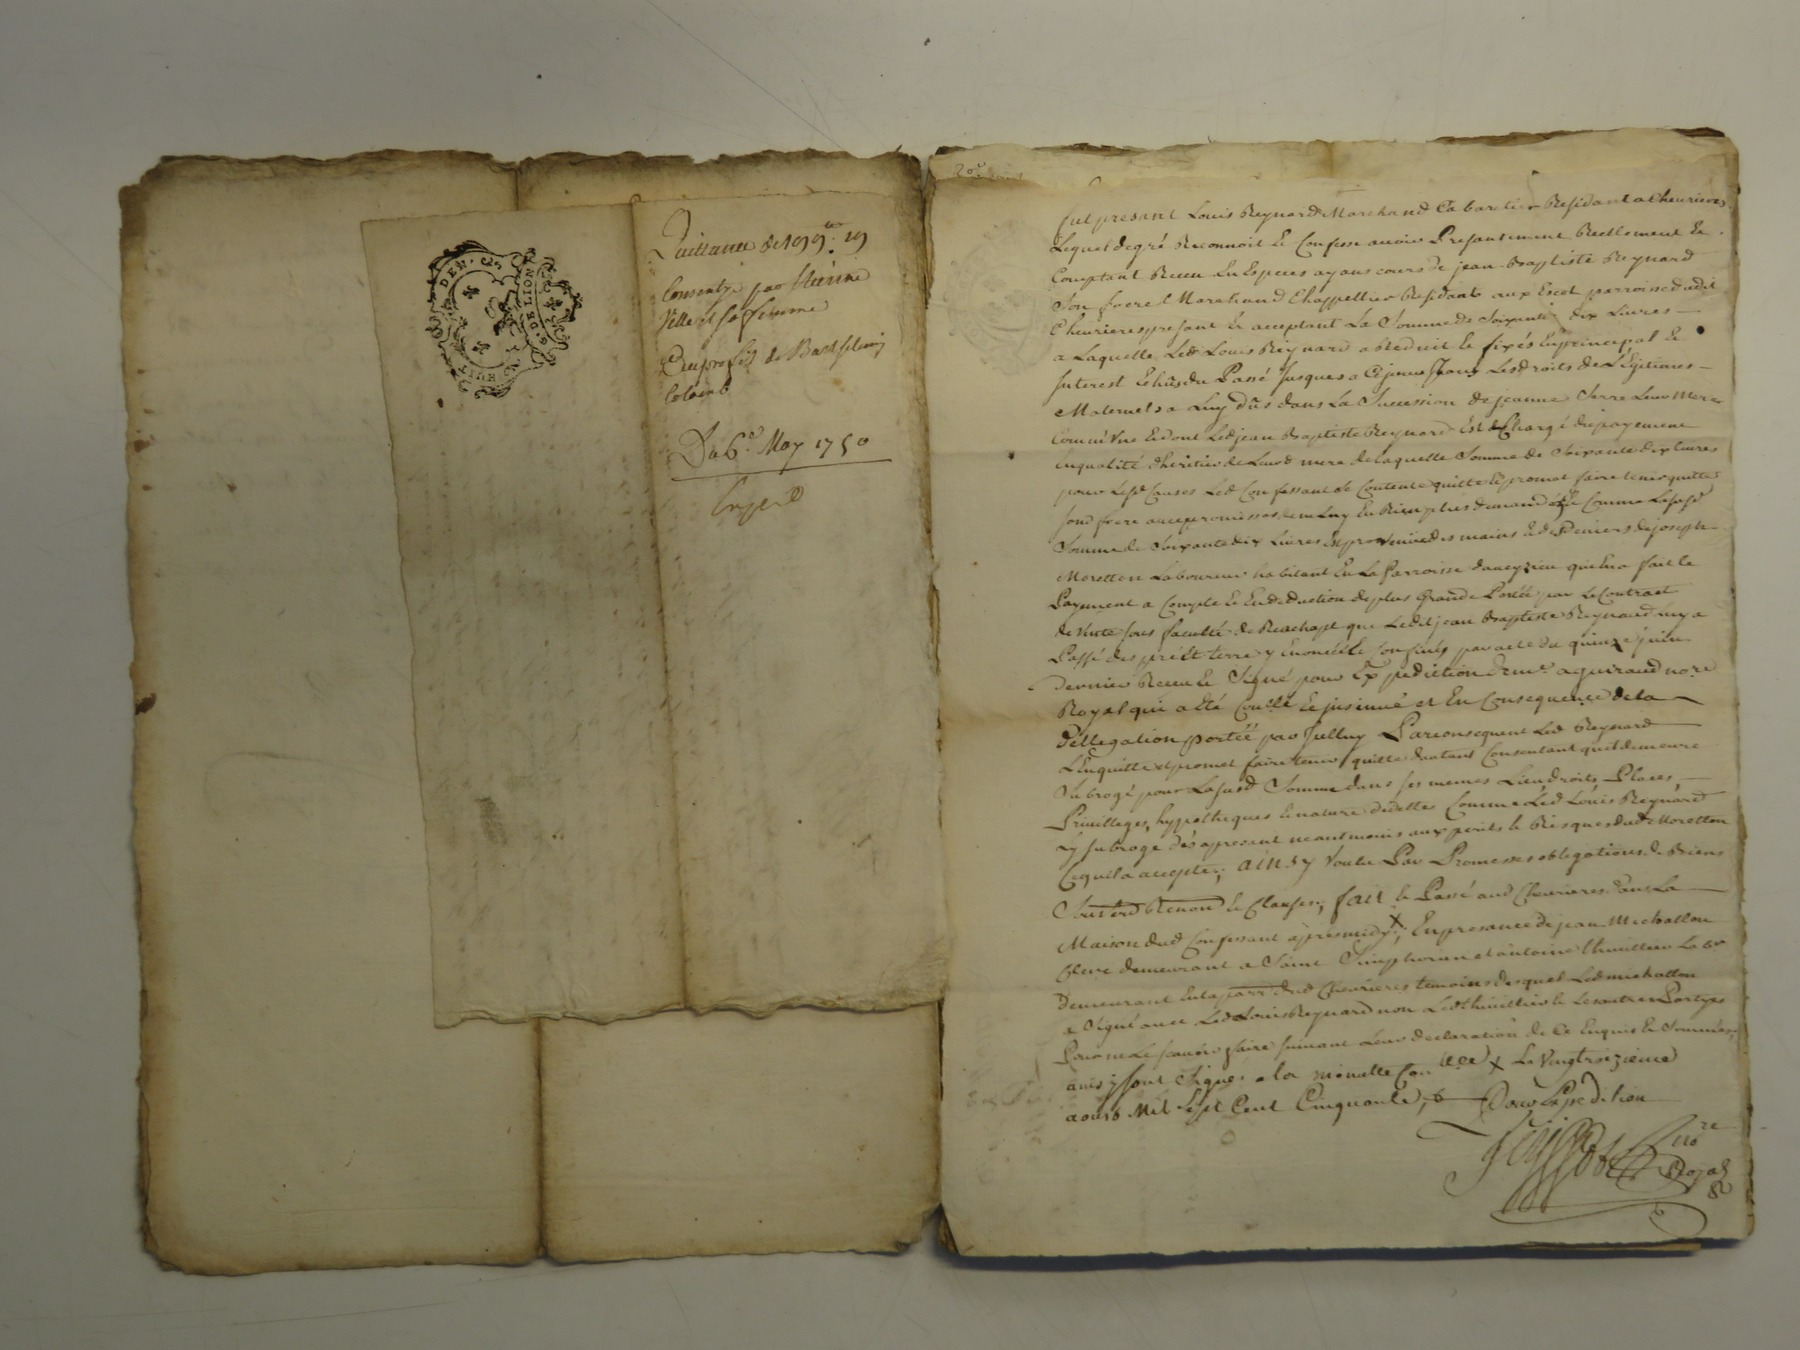 DEN · CES
G · DE LION
HUIT
Quittance de 199tt 19
Consentye par Etienne
Ville et sa femme
Au profit de Barthelemy
Colomb
Du 6e May 1750
fut présant Louis Reynard Marchand Cabartier Residant a Cheurieres
Lequel de gré Reconnoit Et Confesse auoir Presantement Reellement Et
Comptant Receu En Especes ayans cours de jean Baptiste Reynard
Son frere Marchand Chappellier Residant aux Escot parroisse dudit
Cheurieres presant Et acceptant La Somme de Soixante dix Liures
a Laquelle Led Louis Reynard a Reduit Et fixés En principal Et
Interest Echus du Passé Jusques a Ce jour Pour Les droits de Legitimes
Maternels a Luy dûs dans La Succession de jeanne Serre Leur Mere
Commune Et dont Led jean Baptiste Reynard Est Chargé du payement
En qualité d'heritier de Leurd mere de Laquelle Somme de Soixante dix Liures
pour Lesd Causes Led Confessant Se Contente quitte Et promet faire tenir quitte
sond frere auec promesses de ne Luy En Rien plus demander Et Comme Lasusd
Somme de Soixante dix Liures Est prouenüe des mains Et deniers de joseph
Moretton Laboureur habitant En La Parroisse d'aueyzieu qui En a fait Le
Payement a Compte Et En deduction de plus Grande Portée par Le Contract
de Vente sous faculté de Reachapt que Ledit jean Baptiste Reynard Luy a
Passé des pré Et terre y Enoncés Et Confinés par acte du quinze juin
dernier Receu Et Signé pour Expedition de me aguiraud nore
Royal qui a été Conllé Et jnsinué et En Consequence de la
dellegation portée par Jcelluy Par consequent Led Reynard
L'En quitte et promet faire tenir quitte d'autant Consentant qu'il demeure
Subrogé pour Lasusd Somme dans ses memes Lieu droits Places
Priuilleges, hypotheques Et nature de dette Comme Led Louis Reynard
L'y subroge dés apresent neantmoins aux perils Et Risques dud Moretton
Ce qu'il a accepté; ainsy Voulu Par Promesses obligations de Biens
Soub Renon Et Clauses; fait Et Passé aud Cheurieres dans La
Maison dud Confessant apres midy X; En presance de jean Michallon
Clerc demeurant a Saint Simphorien et antoine thuillier Labr
Demeurant En La parr dud Cheurieres temoins desquel Led michallon
a Signé auec Led Louis Reynard non Led thuillier Et Les autres Partyes
Pour ne Le sçauoir faire suiuant Leur declaration de Ce Enquis Et Sommés;
ainsy sont Signes a la minutte Conllée X Le Vingt troizieme
aoust Mil Sept Cent Cinquante; Pour Expedition
nore
Royal